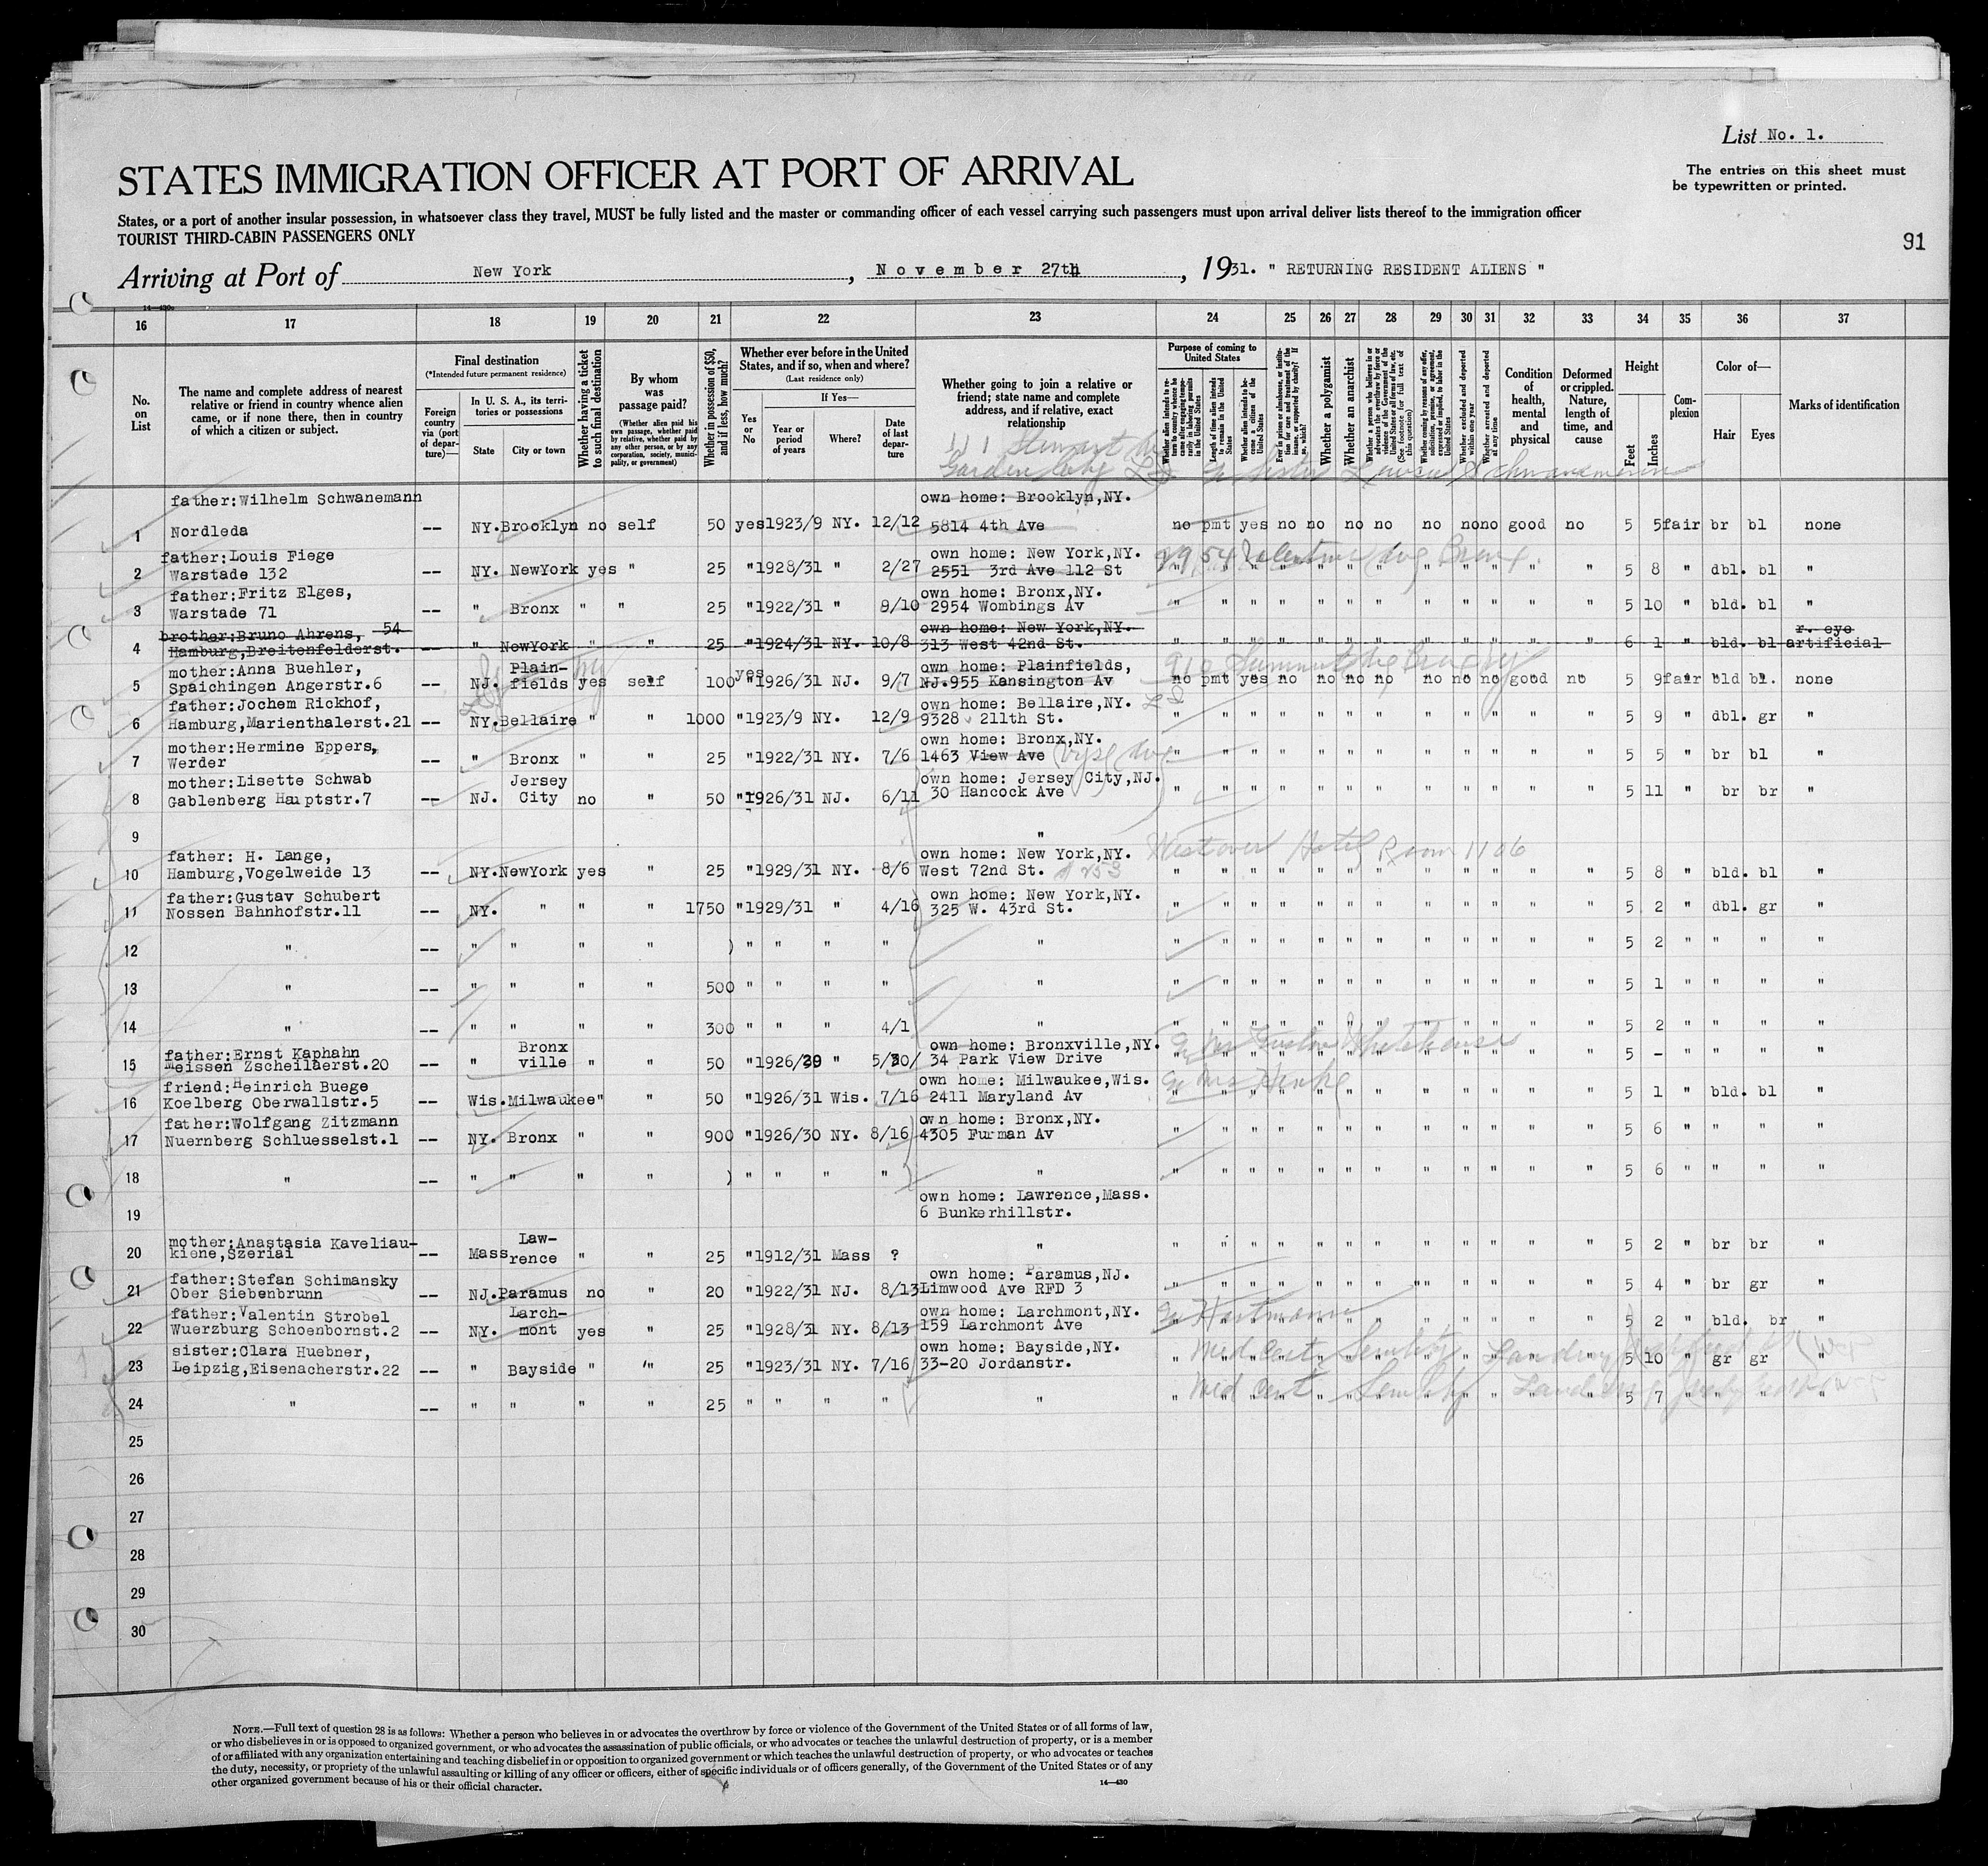 List No. 1.
STATES IMMIGRATION OFFICER AT PORT OF ARRIVAL
The entries on this sheet must
be typewritten or printed.
States, or a port of another insular possession, in whatsoever class they travel, MUST be fully listed and the master or commanding officer of each vessel carrying such passengers must upon arrival deliver lists thereof to the immigration officer
TOURIST THIRD-CABIN PASSENGERS ONLY
91
Arriving at Port of New York, November 27th, 1931. " RETURNING RESIDENT ALIENS "
14—430
16 17 18 19 20 21 22 23 24 25 26 27 28 29 30 31 32 33 34 35 36 37
No. on List
The name and complete address of nearest relative or friend in country whence alien came, or if none there, then in country of which a citizen or subject.
Final destination
(*Intended future permanent residence)
Foreign country via (port of departure)—
In U. S. A., its territories or possessions
State
City or town
Whether having a ticket to such final destination
By whom was passage paid?
(Whether alien paid his own passage, whether paid by relative, whether paid by any other person, or by any corporation, society, municipality, or government)
Whether in possession of $50, and if less, how much?
Whether ever before in the United States, and if so, when and where?
(Last residence only)
Yes or No
If Yes—
Year or period of years
Where?
Date of last departure
Whether going to join a relative or friend; state name and complete address, and if relative, exact relationship
Purpose of coming to United States
Length of time alien intends to remain in the United States
Whether alien intends to become a citizen of the United States
Whether a polygamist
Whether an anarchist
Whether excluded and deported within one year
Whether arrested and deported at any time
Condition of health, mental and physical
Deformed or crippled. Nature, length of time, and cause
Height
Feet
Inches
Complexion
Color of—
Hair
Eyes
Marks of identification
111 Stewart Av
Garden City L I Sister Louise Schwanemann
father:Wilhelm Schwanemann own home: Brooklyn,NY.
1 Nordleda -- NY. Brooklyn no self 50 yes 1923/9 NY. 12/12 5814 4th Ave no pmt yes no no no no no no no good no 5 5 fair br bl none
father:Louis Fiege own home: New York,NY. 2954 Valentine Avg Bronx
2 Warstade 132 -- NY. NewYork yes " 25 "1928/31 " 2/27 2551 3rd Ave 112 St " " " " " " " " " " " " 5 8 " dbl. bl "
father:Fritz Elges, own home: Bronx,NY.
3 Warstade 71 -- " Bronx " " 25 "1922/31 " 8/10 2954 Wombings Av " " " " " " " " " " " " 5 10 " bld. bl "
brother:Bruno Ahrens, 54 own home: New York,NY. r. eye
4 Hamburg,Breitenfelderst. -- " NewYork " " 25 "1924/31 NY. 10/8 313 West 42nd St. " " " " " " " " " " " " 6 1 " bld. bl artificial
mother:Anna Buehler, Plain- yes own home: Plainfields, 910 Summit Av
5 Spaichingen Angerstr.6 -- NJ. fields yes self 100 "1926/31 NJ. 9/7 NJ.955 Kansington Av no pmt yes no no no no no no no good no 5 9 fair bld bl. none
father:Jochem Rickhof, own home: Bellaire,NY. L I
6 Hamburg,Marienthalerst.21 -- NY. Bellaire " " 1000 "1923/9 NY. 12/9 9328 211th St. " " " " " " " " " " " " 5 9 " dbl. gr "
mother:Hermine Eppers, own home: Bronx,NY.
7 Werder -- " Bronx " " 25 "1922/31 NY. 7/6 1463 View Ave (Vyse Ave " " " " " " " " " " " " 5 5 " br bl "
mother:Lisette Schwab Jersey own home: Jersey City,NJ.
8 Gablenberg Hauptstr.7 -- NJ. City no " 50 "1926/31 NJ. 6/11 30 Hancock Ave " " " " " " " " " " " " 5 11 " br br "
9 "
father: H. Lange, own home: New York,NY. Westover Hotel Room 1106
10 Hamburg,Vogelweide 13 -- NY. NewYork yes " 25 "1929/31 NY. 8/6 West 72nd St. # 253 " " " " " " " " " " " " 5 8 " bld. bl "
father:Gustav Schubert own home: New York,NY.
11 Nossen Bahnhofstr.11 -- NY. " " " 1750 "1929/31 " 4/16 325 W. 43rd St. " " " " " " " " " " " " 5 2 " dbl. gr "
12 " -- " " " " ) " " " " " " " " " " " " " " " " " " 5 2 " " " "
13 " -- " " " " 500 " " " " " " " " " " " " " " " " " " 5 1 " " " "
14 " -- " " " " 300 " " " 4/1 " " " " " " " " " " " " " " 5 2 " " " "
father:Ernst Kaphahn Bronx own home: Bronxville,NY. Whitehouse
15 Meissen Zscheilaerst.20 -- " ville " " 50 "1926/29 " 5/30/ 34 Park View Drive " " " " " " " " " " " " 5 - " " " "
friend:Heinrich Buege own home: Milwaukee,Wis.
16 Koelberg Oberwallstr.5 -- Wis. Milwaukee " " 50 "1926/31 Wis. 7/16 2411 Maryland Av " " " " " " " " " " " " 5 1 " bld. bl "
father:Wolfgang Zitzmann own home: Bronx,NY.
17 Nuernberg Schluesselst.1 -- NY. Bronx " " 900 "1926/30 NY. 8/16 4305 Furman Av " " " " " " " " " " " " 5 6 " " " "
18 " -- " " " " ) " " " " " " " " " " " " " " " " " " 5 6 " " " "
own home: Lawrence,Mass.
19 6 Bunkerhillstr.
mother:Anastasia Kaveliau- Law-
20 kiene,Szeriai -- Mass rence " " 25 "1912/31 Mass ? " " " " " " " " " " " " " 5 2 " br br "
father:Stefan Schimansky own home: Paramus,NJ.
21 Ober Siebenbrunn -- NJ. Paramus no " 20 "1922/31 NJ. 8/13 Limwood Ave RFD 3 " " " " " " " "" " " " " 5 4 " br gr "
father:Valentin Strobel Larch- own home: Larchmont,NY. Hartmann
22 Wuerzburg Schoenbornst.2 -- NY. mont yes " 25 "1928/31 NY. 8/13 159 Larchmont Ave " " " " " " " " " " " " 5 2 " bld. br "
sister:Clara Huebner, own home: Bayside,NY. Med Cert Senility
23 Leipzig,Eisenacherstr.22 -- " Bayside " " 25 "1923/31 NY. 7/16 33-20 Jordanstr. " " " " " " " " " " " " 5 10 " gr gr "
Med Cert Senility
24 " -- " " " " 25 " " " " " " " " " " " " " " " " " " 5 7 " " " "
25
26
27
28
29
30
NOTE.—Full text of question 28 is as follows: Whether a person who believes in or advocates the overthrow by force or violence of the Government of the United States or of all forms of law,
or who disbelieves in or is opposed to organized government, or who advocates the assassination of public officials, or who advocates or teaches the unlawful destruction of property, or is a member
of or affiliated with any organization entertaining and teaching disbelief in or opposition to organized government or which teaches the unlawful destruction of property, or who advocates or teaches
the duty, necessity, or propriety of the unlawful assaulting or killing of any officer or officers, either of specific individuals or of officers generally, of the Government of the United States or of any
other organized government because of his or their official character.
14—430